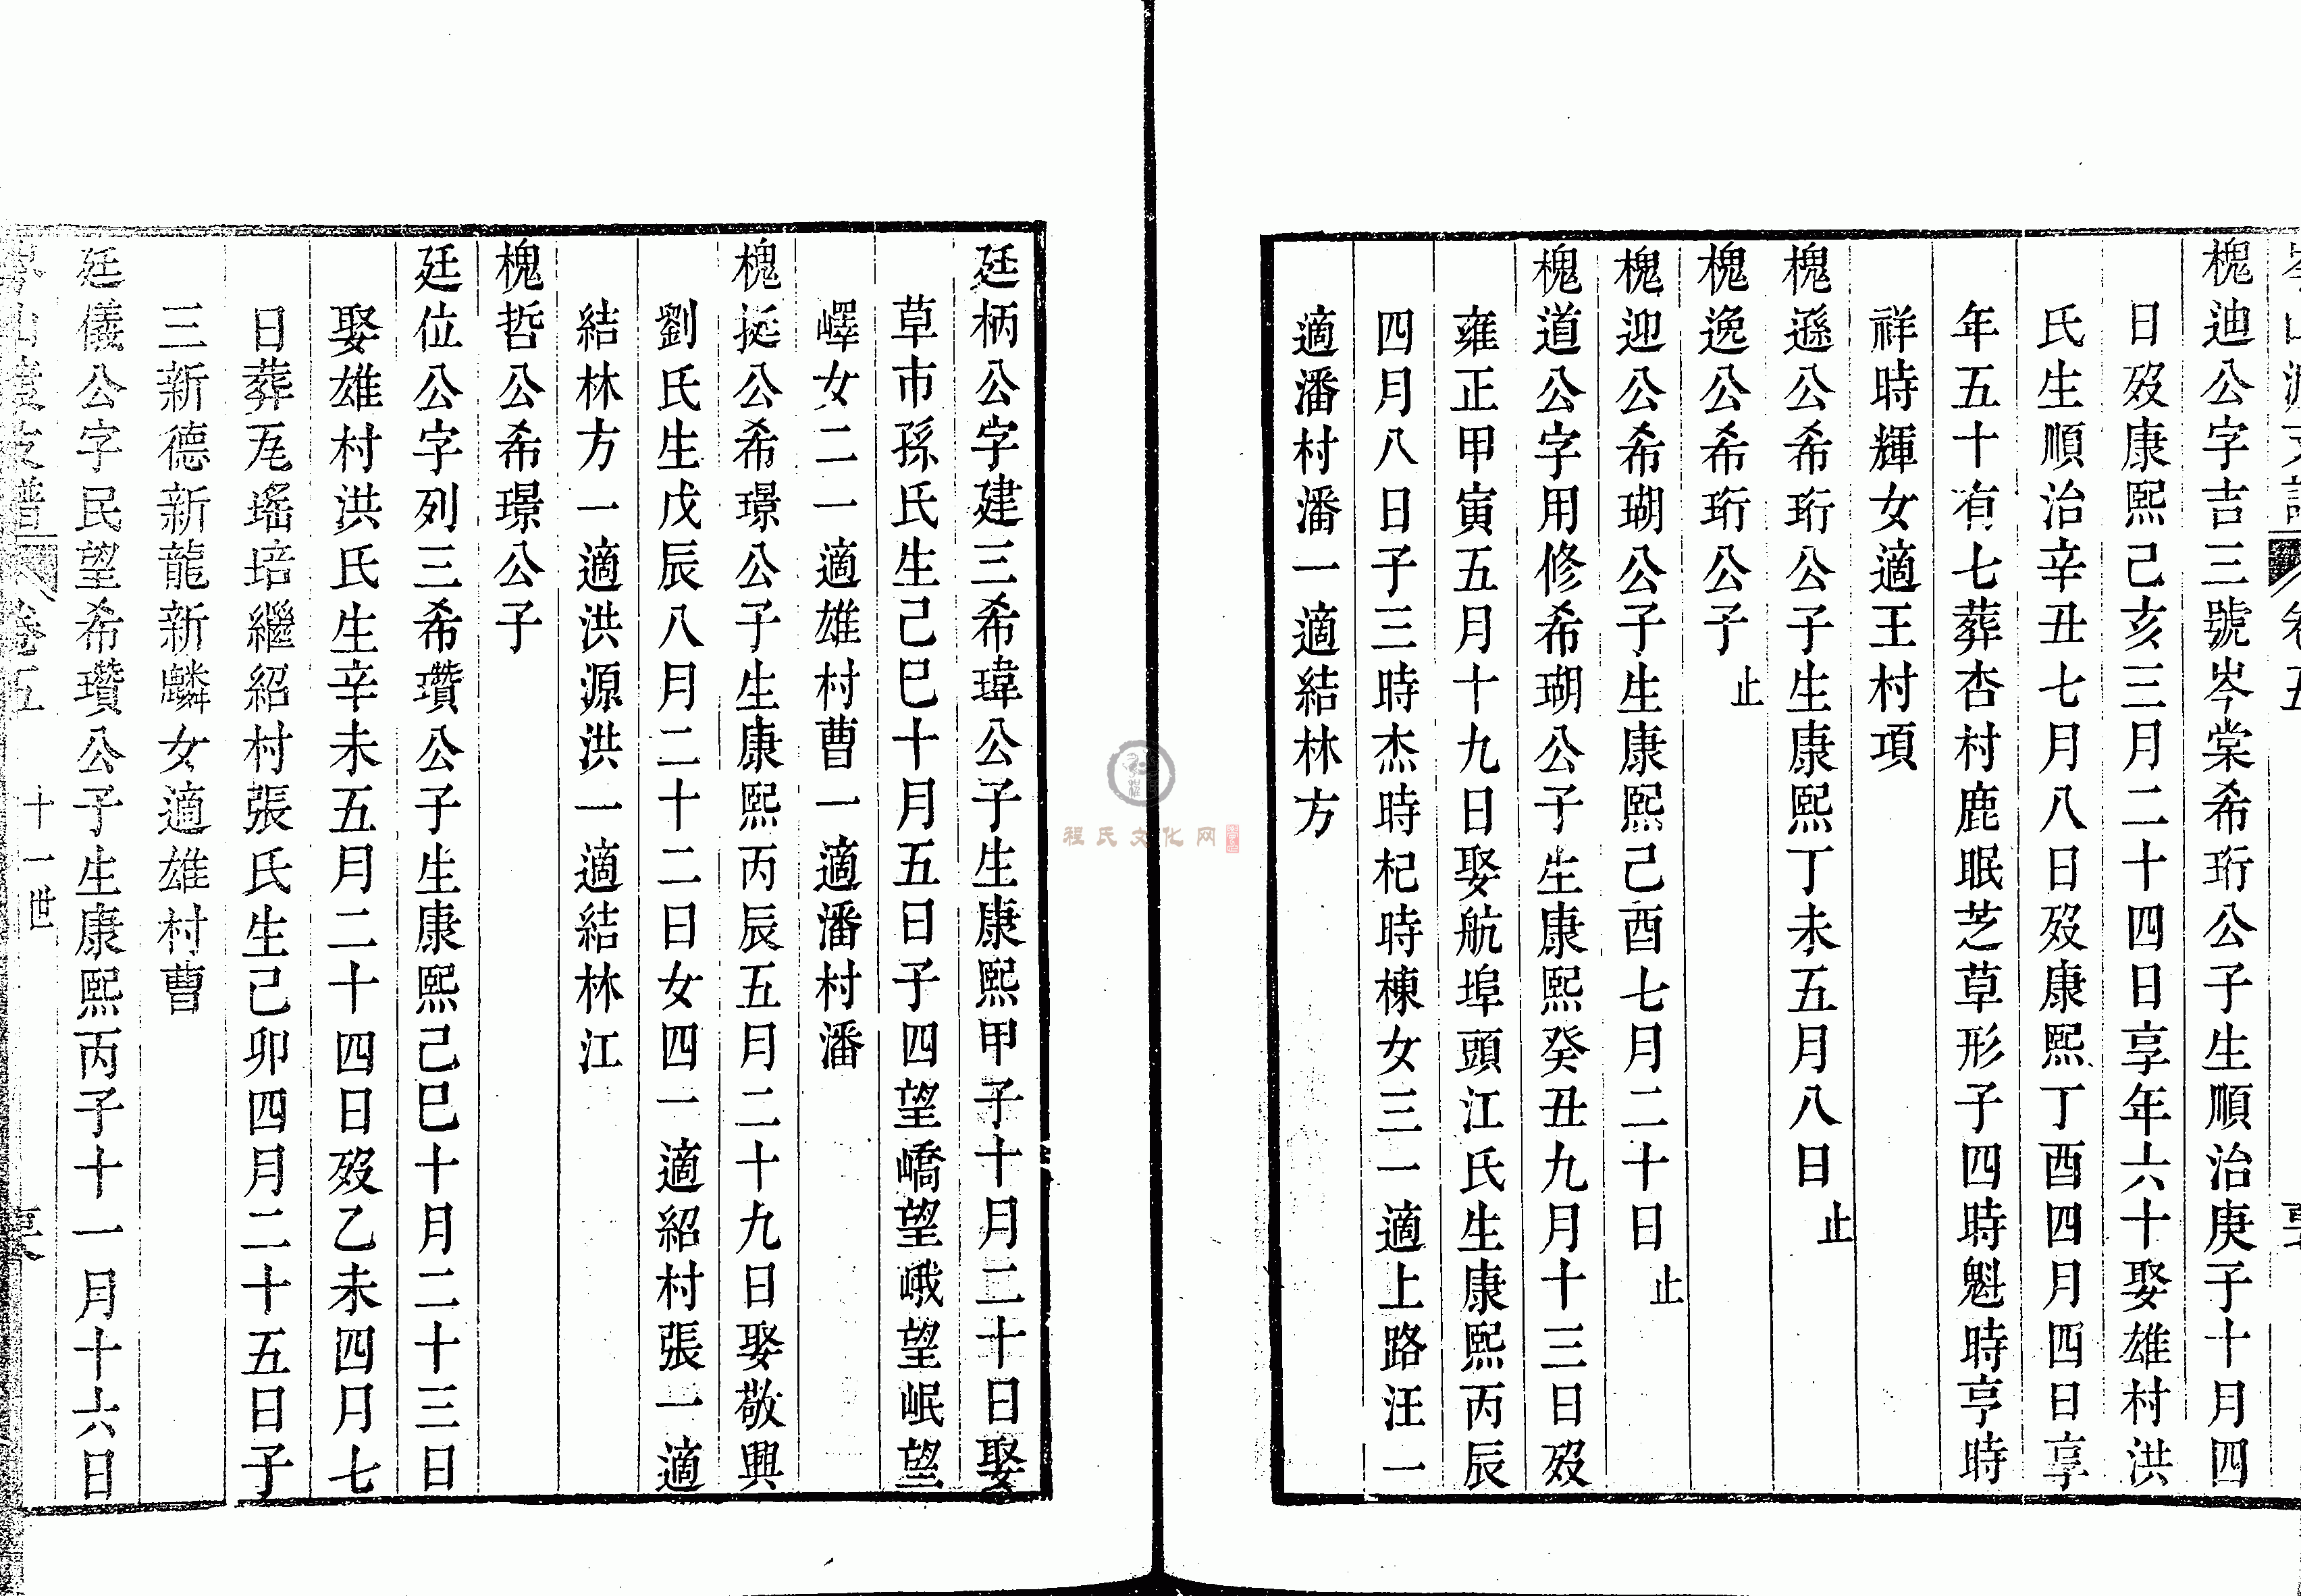 槐迪公字吉三號岑棠希珩公子生順治庚子十月四
日歿康熙己亥三月二十四日享年六十娶雄村洪
氏生順治辛丑七月八日歿康熙丁酉四月四日享
年五十有七葬杏村鹿眠芝草形子四時魁時亨時
祥時輝女適王村項
槐遜公希珩公子生康熙丁未五月八日止
槐逸公希珩公子止
槐迎公希瑚公子生康熙己酉七月二十日止
槐道公字用修希瑚公子生康熙癸丑九月十三日歿
雍正甲寅五月十九日娶航埠頭江氏生康熙丙辰
四月八日子三時杰時杞時棟女三一適上路汪一
適潘村潘一適結林方
廷柄公字建三希瑋公子生康熙甲子十月二十日娶
草市孫氏生己巳十月五日子四望嶠望峨望岷望
嶧女二一適雄村曹一適潘村潘
槐挺公希璟公子生康熙丙辰五月二十九日娶敬興
劉氏生戊辰八月二十二日女四一適紹村張一適
結林方一適洪源洪一適結林江
槐哲公希璟公子
廷位公字列三希瓚公子生康熙己巳十月二十三日
娶雄村洪氏生辛未五月二十四日歿乙未四月七
日葬瓦瑤培繼紹村張氏生己卯四月二十五日子
三新德新龍新麟女適雄村曹
廷儀公字民望希瓚公子生康熙丙子十一月十六日
卷五 十一世
程氏文化网